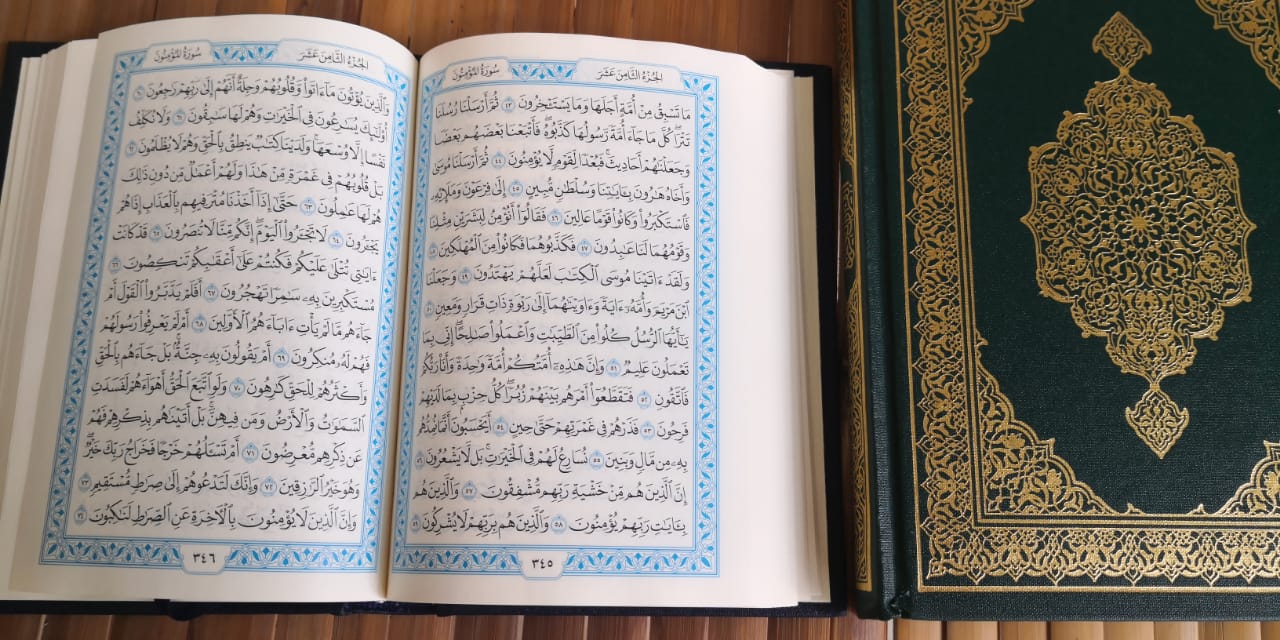 الجزء الثامن عشر
سورة المؤمنون
ما تسبق من أمة أجلها وما يستـٔخرون ٤٣ ثم أرسلنا رسلنا
تترا كل ما جاء أمة رسولها كذبوه فأتبعنا بعضهم بعضا
وجعلنـهم أحاديث فبعدا لقوم لا يؤمنون ٤٤ ثم أرسلنا موسى
وأخاه هـرون بـٔايـتنا وسلطـن مبين ٤٥ إلى فرعون وملإيه
فاستكبروا وكانوا قوما عالين ٤٦ فقالوا أنؤمن لبشرين مثلنا
وقومهما لنا عـبدون ٤٧ فكذبوهما فكانوا من المهلكين ٤٨
ولقد ءاتينا موسى الكتـب لعلهم يهتدون ٤٩ وجعلنا
ابن مريم وأمه ءاية وءاوينـهما إلى ربوة ذات قرار ومعين ٥٠
يـأيها الرسل كلوا من الطيبـت واعملوا صـلحا إني بما
تعملون عليم ٥١ وإن هـذه أمتكم أمة وحدة وأنا ربكم
فاتقون ٥٢ فتقطعوا أمرهم بينهم زبرا كل حزب بما لديهم
فرحون ٥٣ فذرهم في غمرتهم حتى حين ٥٤ أيحسبون أنما نمدهم
به من مال وبنين ٥٥ نسارع لهم في الخيرت بل لا يشعرون ٥٦
إن الذين هم من خشية ربهم مشفقون ٥٧ والذين هم
بـٔايـت ربهم يؤمنون ٥٨ والذين هم بربهم لا يشركون ٥٩
٣٤٥
الجزء الثامن عشر
سورة المؤمنون
والذين يؤتون ما ءاتوا وقلوبهم وجلة أنهم إلى ربهم رجعون ٦٠
أولـئك يسـرعون في الخيرت وهم لها سـبقون ٦١ ولا نكلف
نفسا إلا وسعها ولدينا كتـب ينطق بالحق وهم لا يظلمون ٦٢
بل قلوبهم في غمرة من هـذا ولهم أعمـل من دون ذلك
هم لها عـملون ٦٣ حتى إذا أخذنا مترفيهم بالعذاب إذا هم
يجـٔرون ٦٤ لا تجـٔروا اليوم إنكم منا لا تنصرون ٦٥ قد كانت
ءايـتي تتلى عليكم فكنتم على أعقـبكم تنكصون ٦٦
مستكبرين به سـمرا تهجرون ٦٧ أفلم يدبروا القول أم
جاءهم ما لم يأت ءاباءهم الأولين ٦٨ أم لم يعرفوا رسولهم
فهم له منكرون ٦٩ أم يقولون به جنة بل جاءهم بالحق
وأكثرهم للحق كـرهون ٧٠ ولو اتبع الحق أهواءهم لفسدت
السمـوت والأرض ومن فيهن بل أتينـهم بذكرهم فهم
عن ذكرهم معرضون ٧١ أم تسـٔلهم خرجا فخراج ربك خير
وهو خير الرزقين ٧٢ وإنك لتدعوهم إلى صرط مستقيم ٧٣
وإن الذين لا يؤمنون بالأخرة عن الصرط لنـكبون ٧٤
٣٤٦